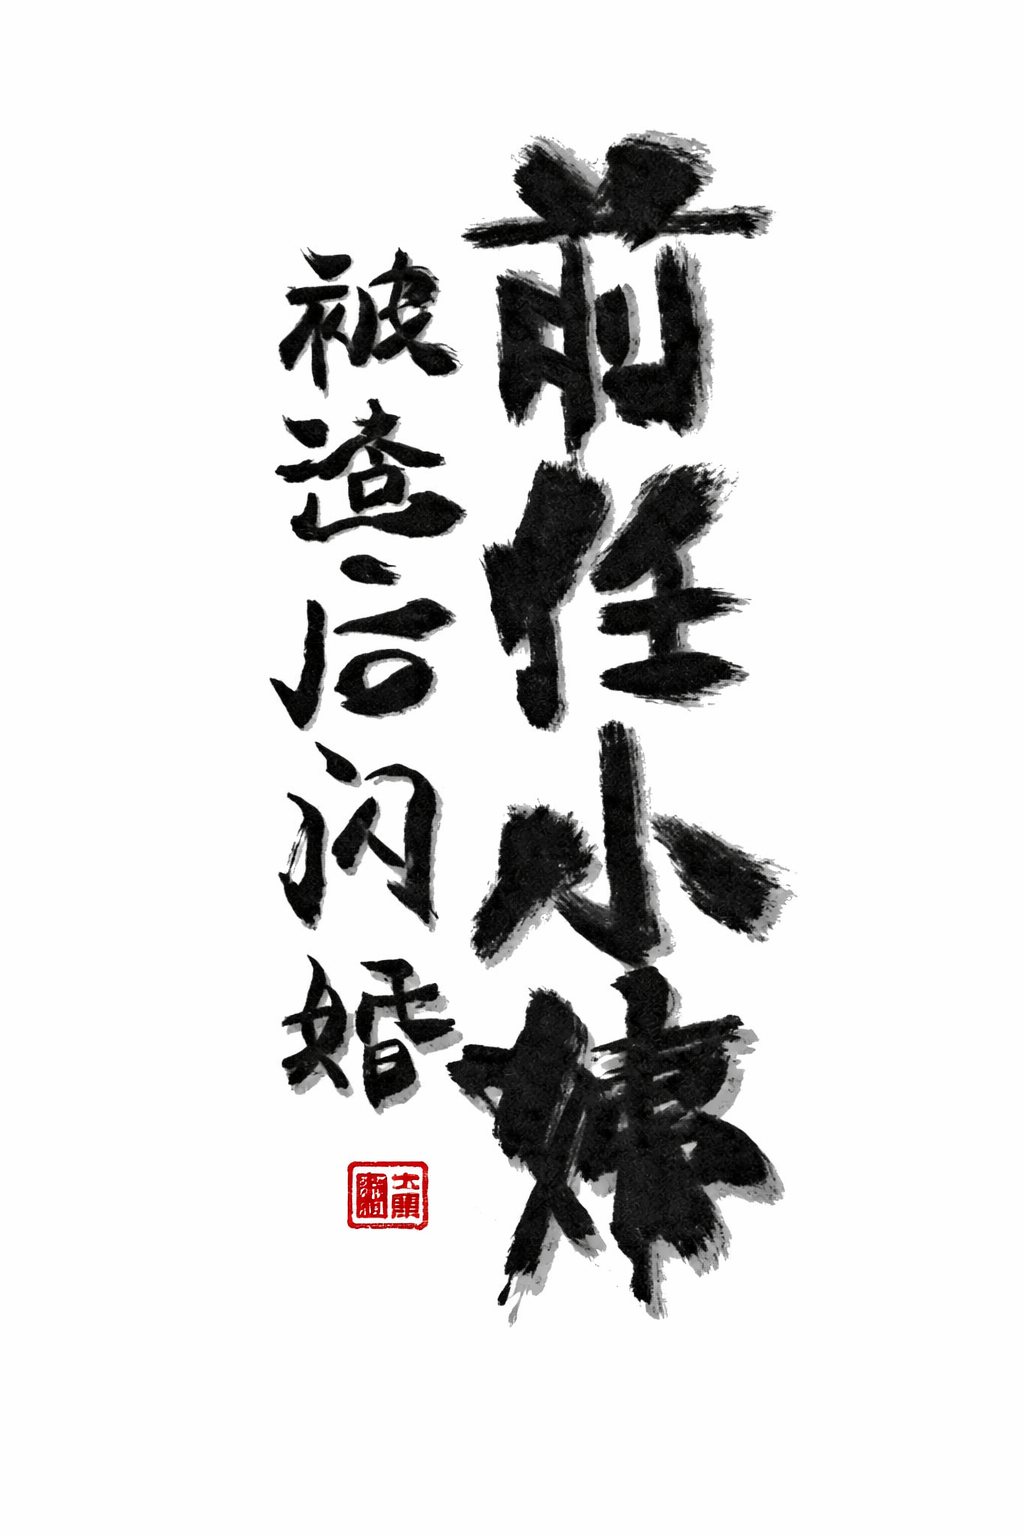 前任小姨
被渣后闪婚